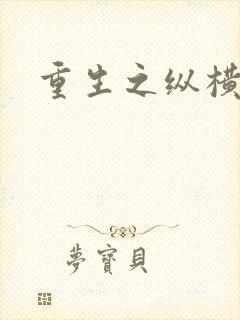 重生之纵横
夢寶貝